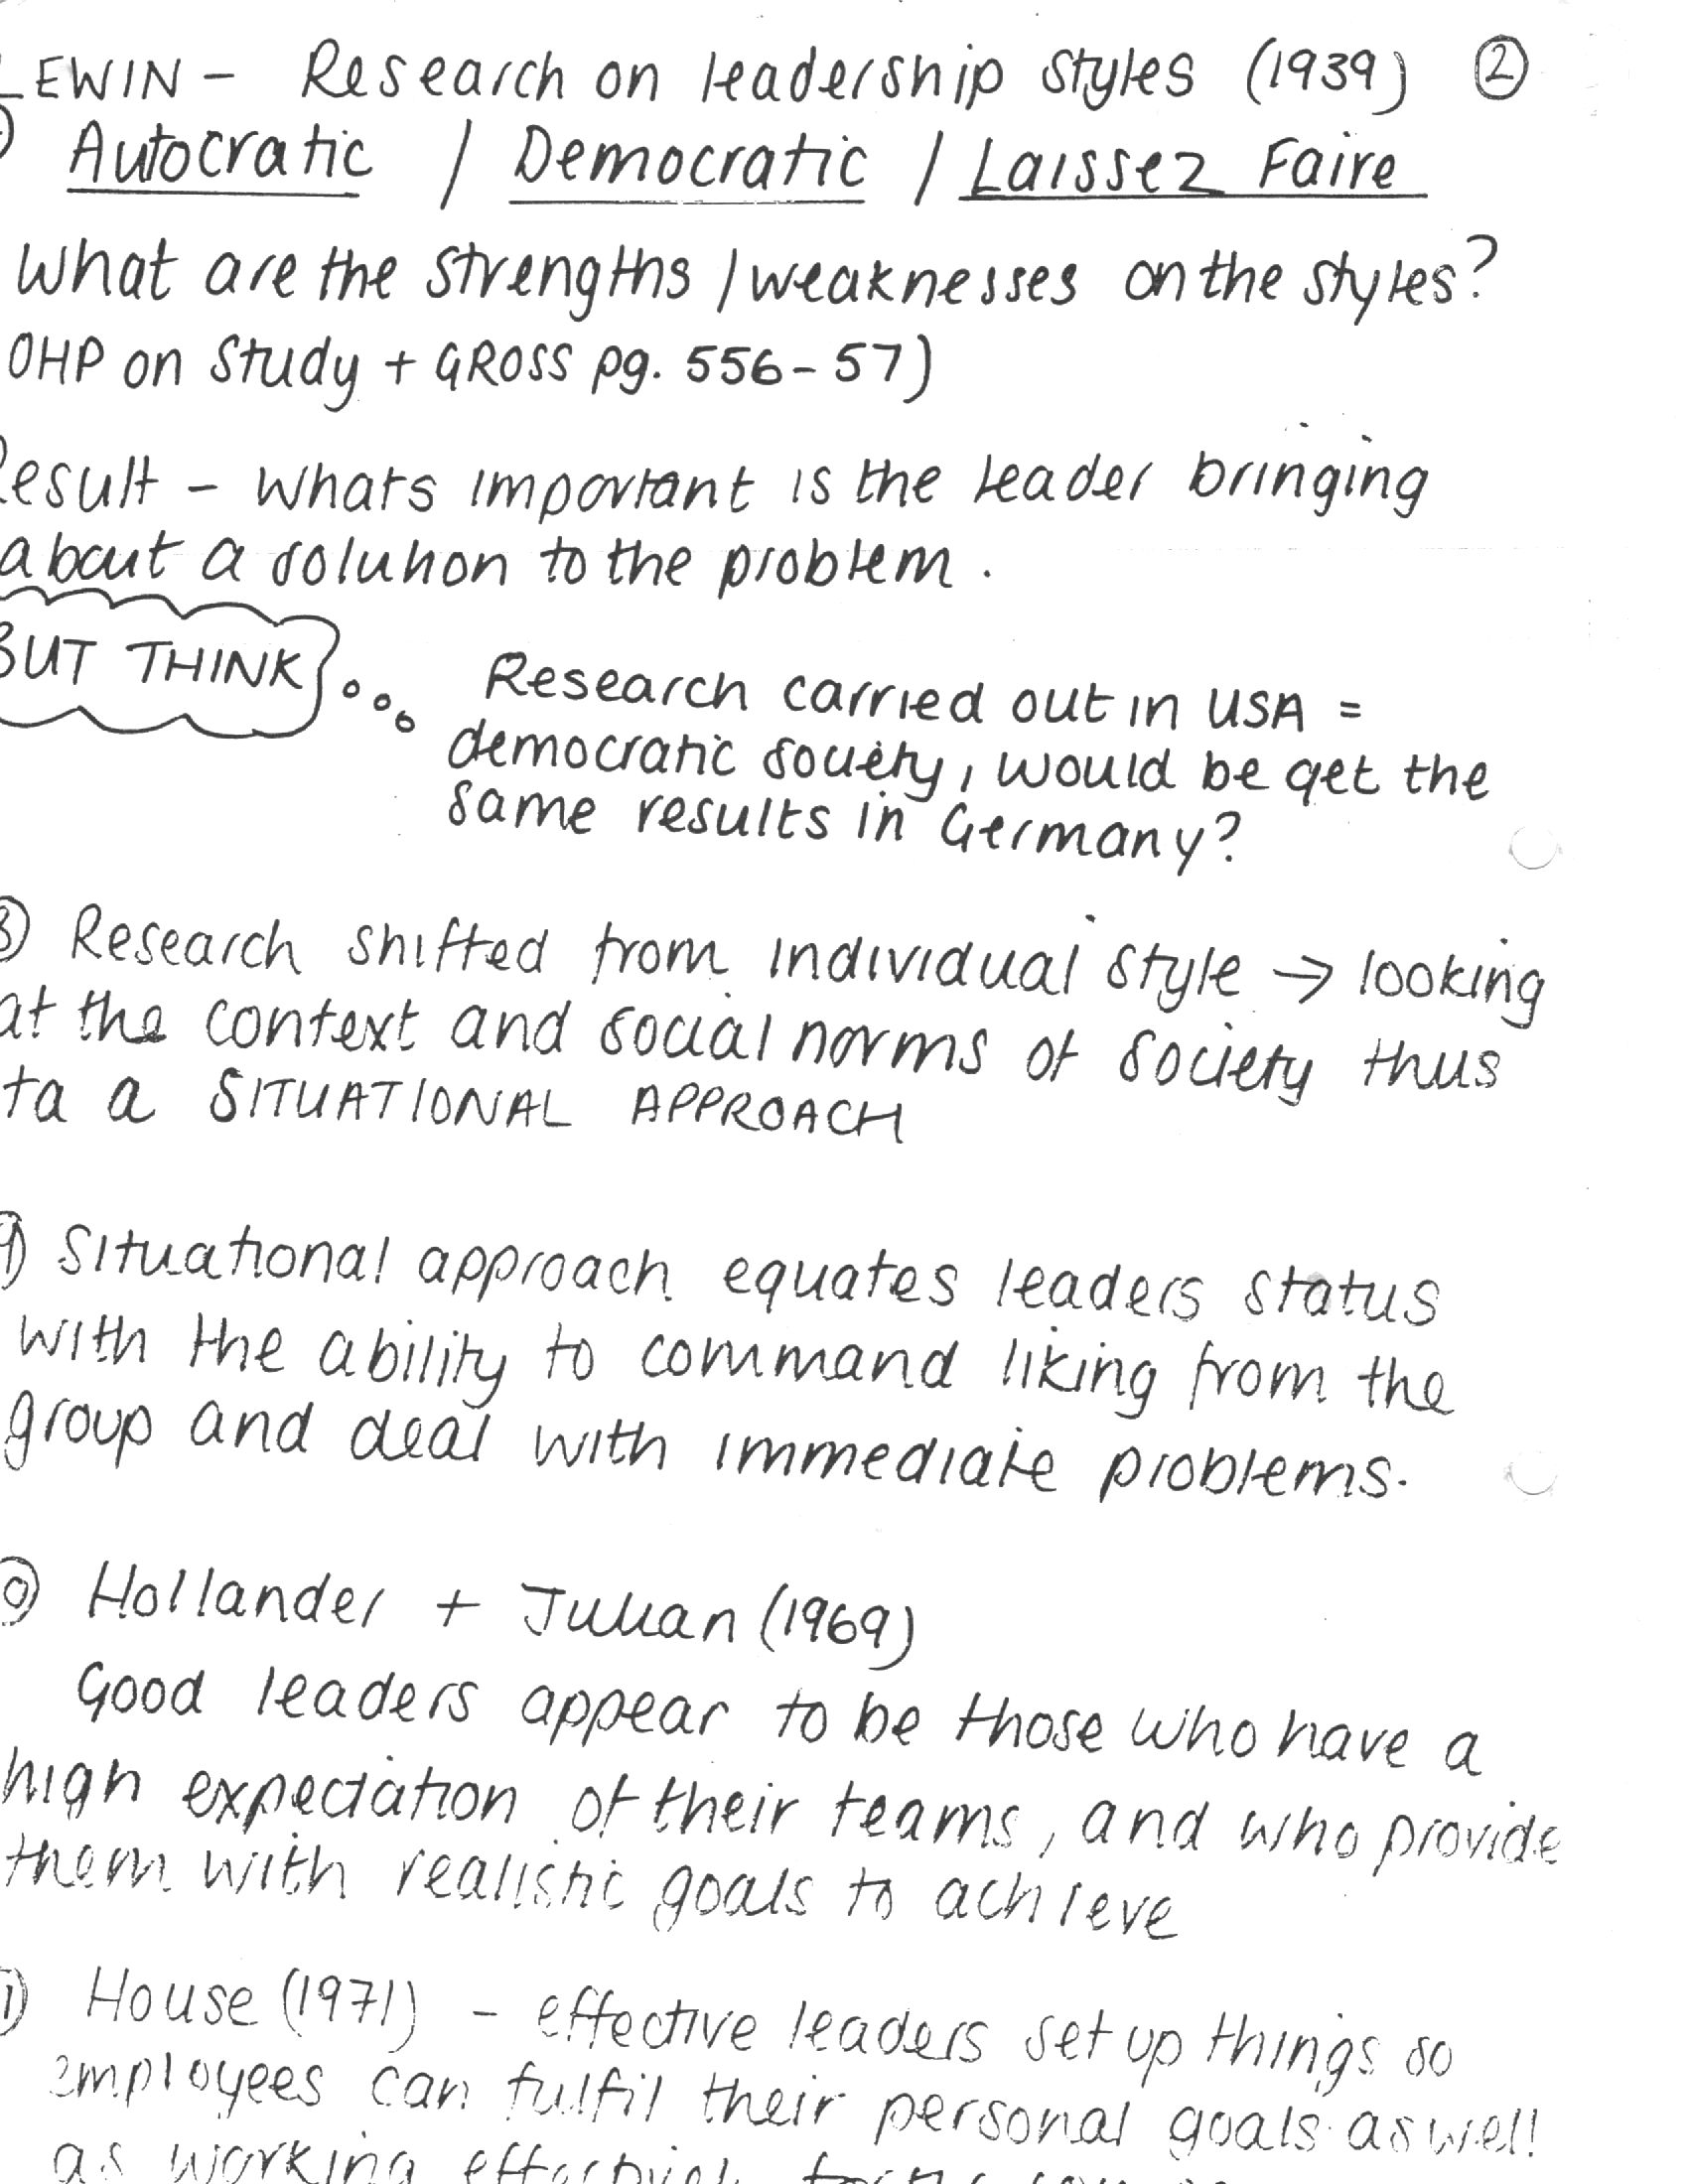 LEWIN - Research on leadership styles (1939) ②
Autocratic / Democratic / Laissez Faire
What are the strengths / weaknesses on the styles?
OHP on Study + GROSS pg. 556-57)
Result - whats important is the leader bringing
about a solution to the problem.
BUT THINK
Research carried out in USA =
democratic society, would be get the
same results in Germany?
8) Research shifted from individual style → looking
at the context and social norms of society thus
ta a SITUATIONAL APPROACH
9) Situational approach equates leaders status
with the ability to command liking from the
group and deal with immediate problems.
0) Hollander + Julian (1969)
Good leaders appear to be those who have a
high expectation of their teams, and who provide
them with realistic goals to achieve
1) House (1971) - effective leaders set up things so
employees can fulfil their personal goals aswell
as working